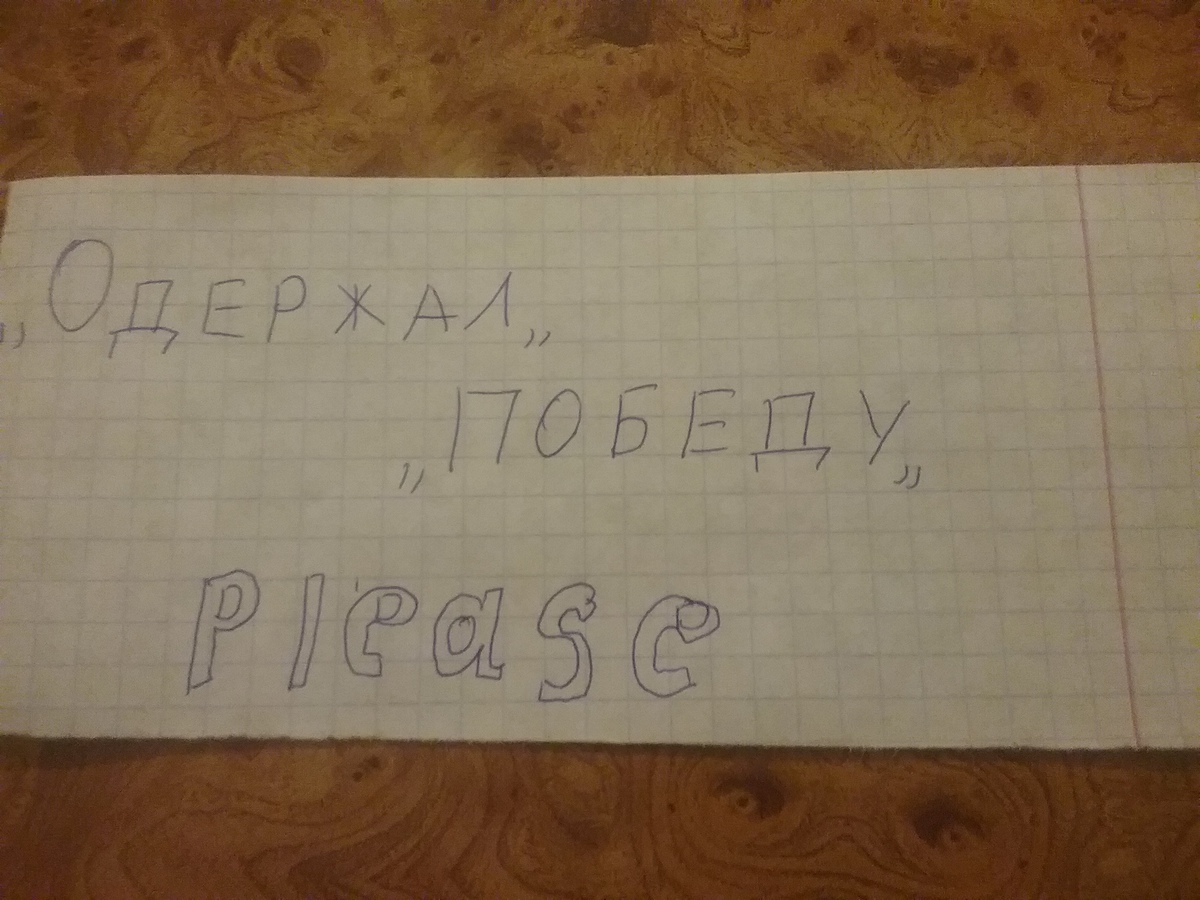 „Одержал„
„ПОБЕДУ„
Please